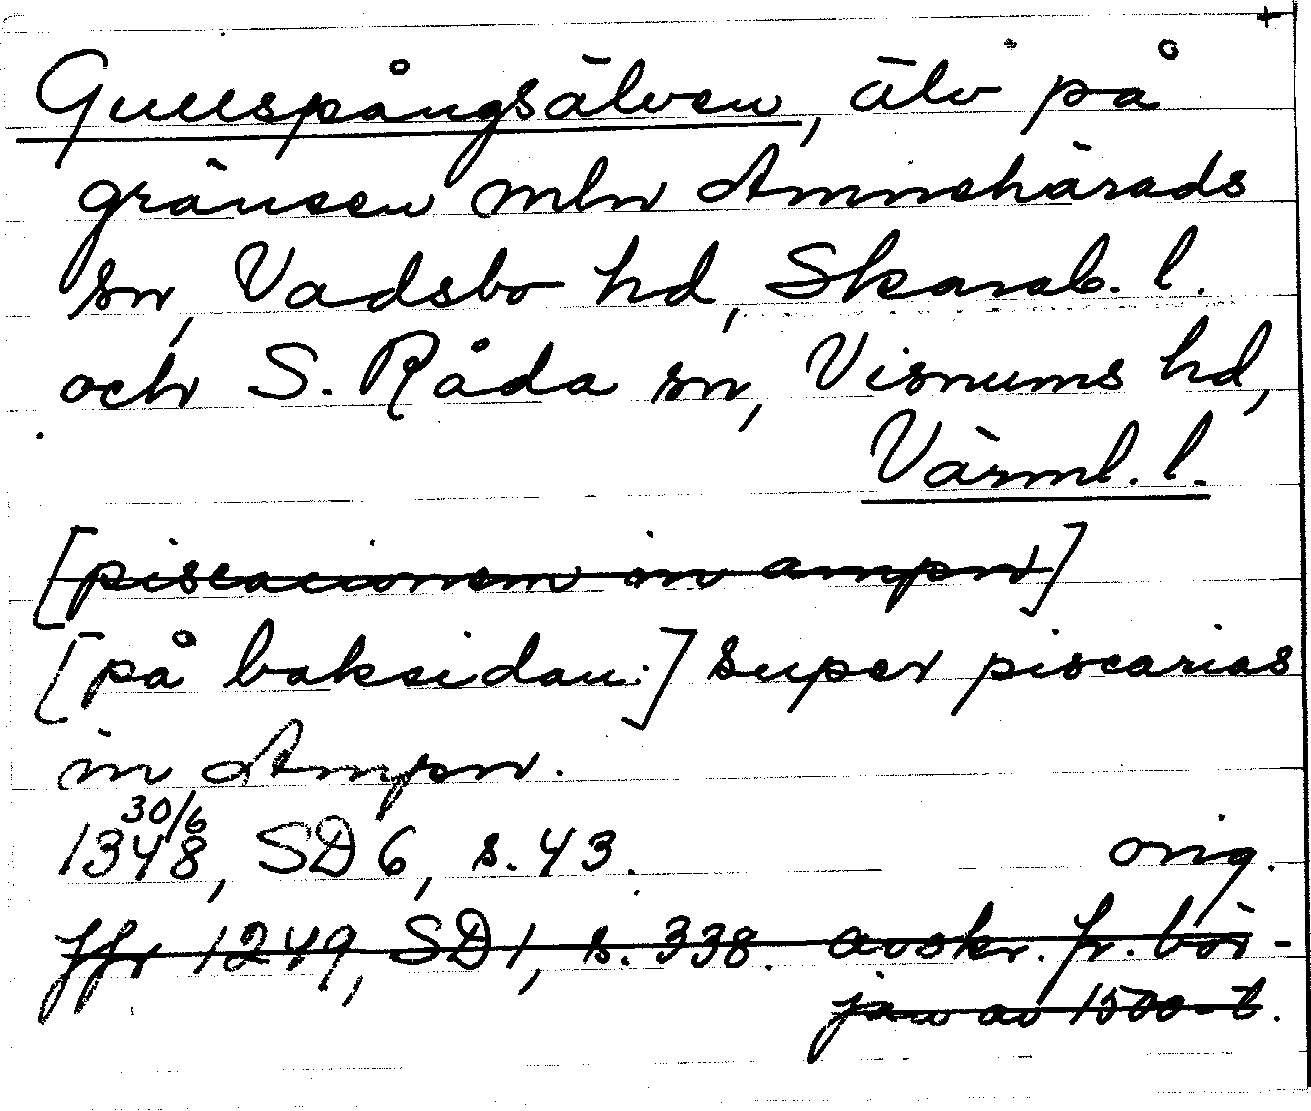 +
Gullspångsälven, älv på
gränsen mln Amnehärads
sn, Vadsbo hd, Skarab. l.
och S. Råda sn, Visnums hd,
Värml. l.
[piscacionem in ampn]
[på baksidan:] super piscarias
in Ampn.
1348 30/6, SD 6, s. 43. orig.
Jfr 1249, SD 1, s. 338. avskr. fr. bör-
jan av 1500-t.